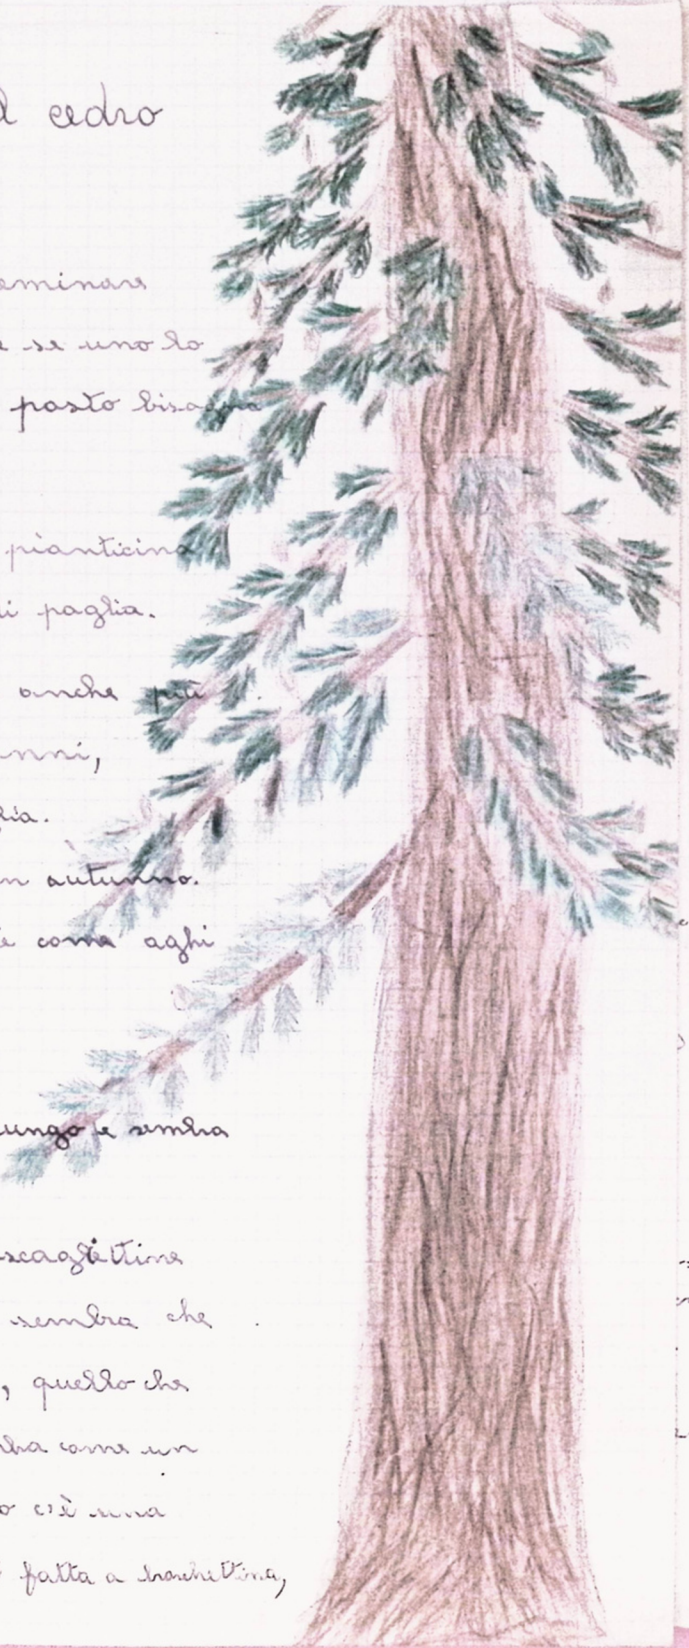 l cedro
eminare
e se uno lo
posto bisogna
pianticina
di paglia.
anche più
nni,
glia.
in autunno.
è come aghi
lungo e sembra
scagliettine
sembra che
, quello che
bra come un
o c'è una
fatta a barchettina,